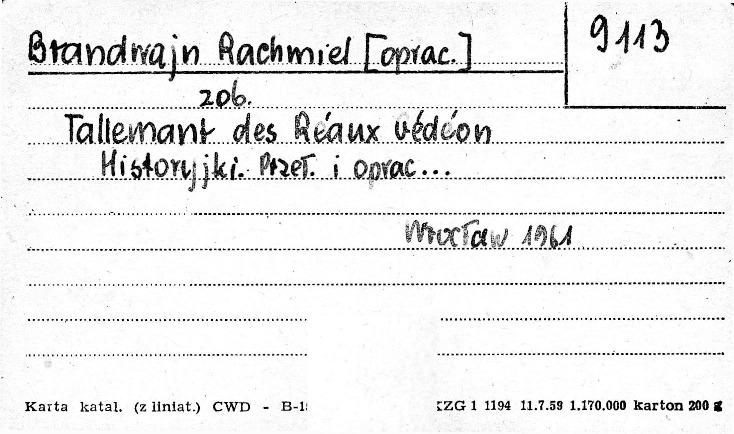 Brandwajn Rachmiel [oprac.]
9113
zob.
Tallemant des Réaux Védéon
Historyjki. Przeł. i oprac...
Wrocław 1961
Karta katal. (z liniat.) CWD - B-1
ZG 1 1194 11.7.59 1.170.000 karton 200 g